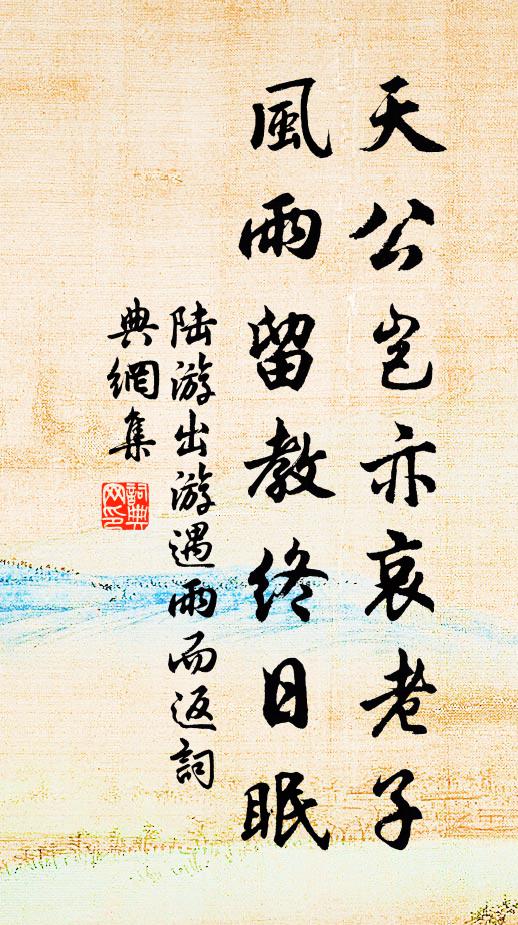 天公岂亦哀老子
風雨留教终日眠
陆游出游遇雨而返詞
典網集
詞典网印